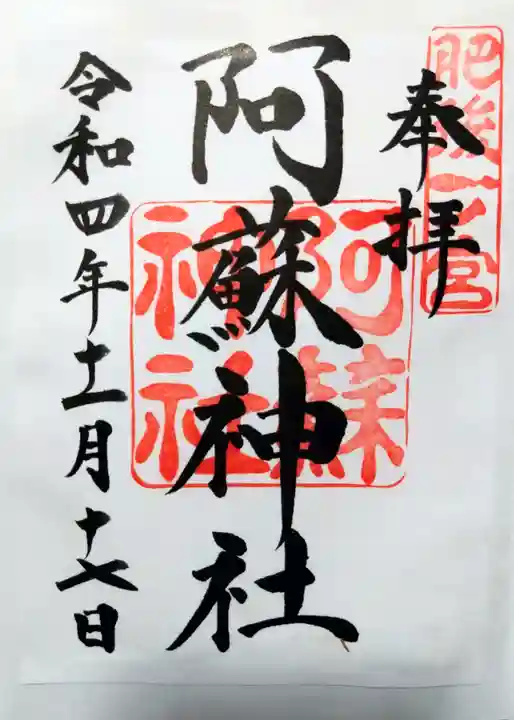 肥後一之宮
奉拝
阿蘇神社
阿蘇神社
令和四年十一月十七日